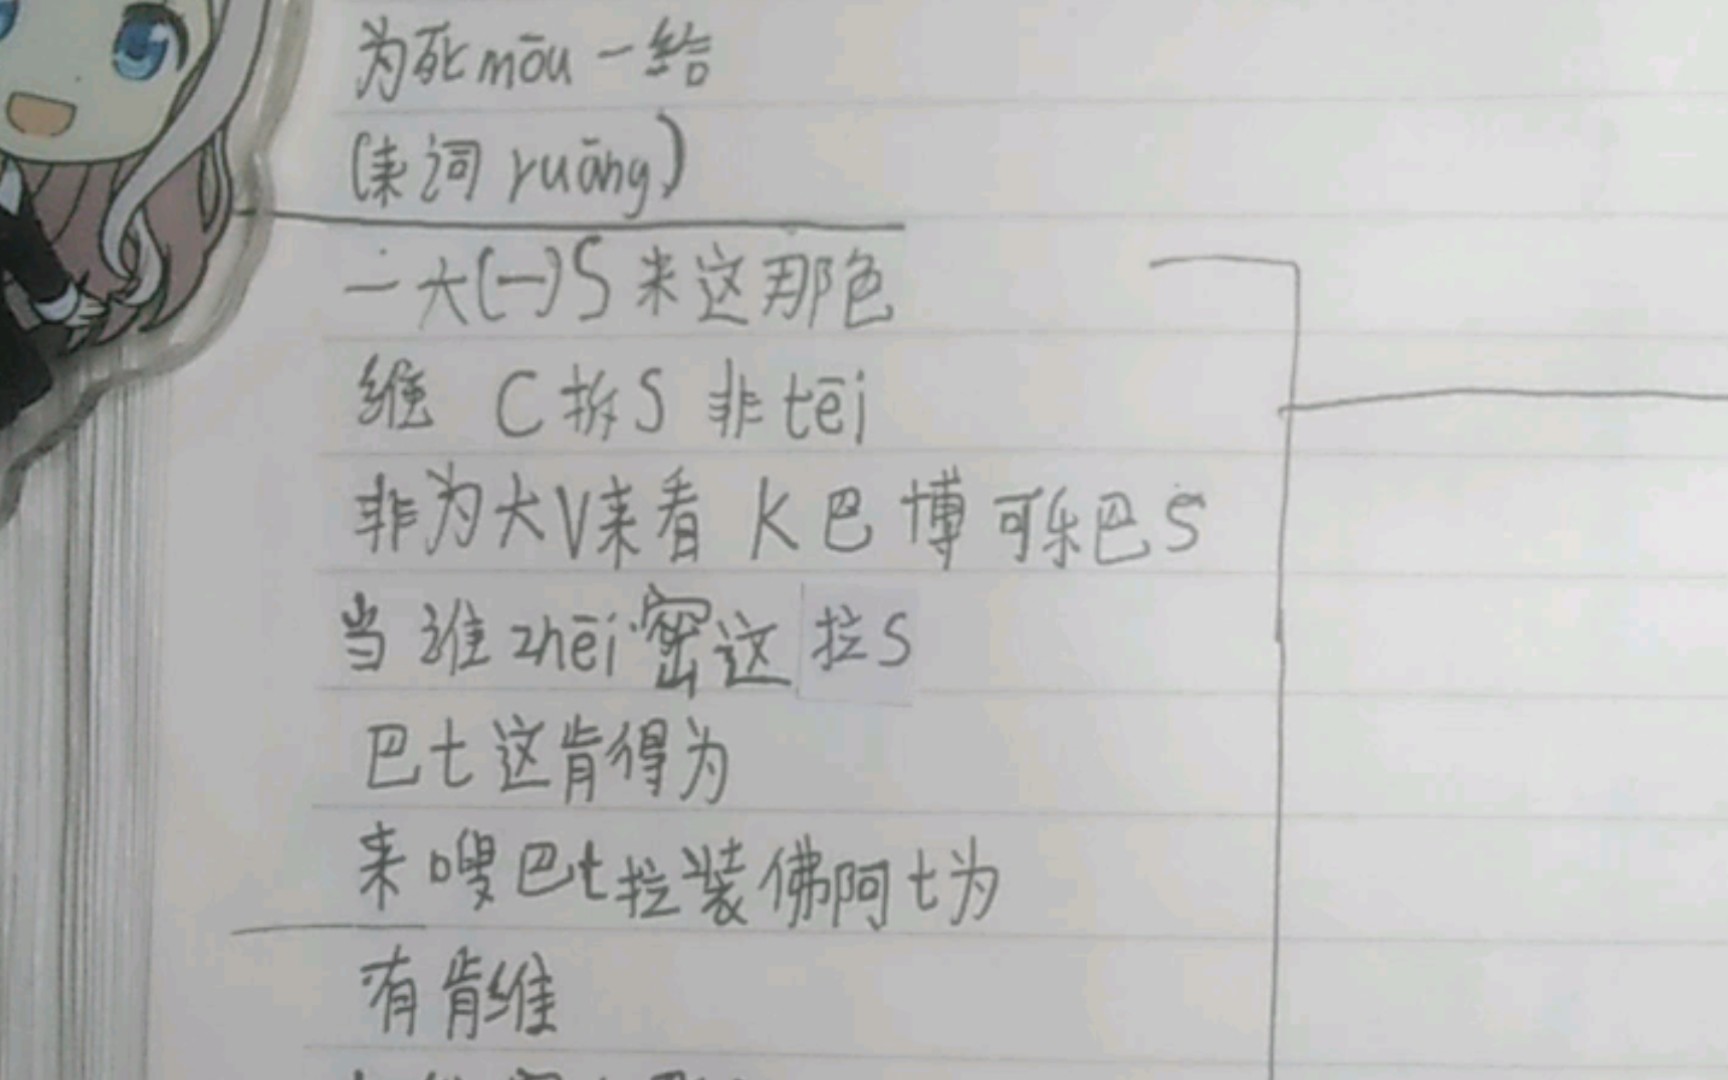 为死mōu一给
(来词ruāng)
一大(一)S来这那色
维 C拆S 非tēi
非为大V来看 K巴博可乐巴S
当谁zhēi密这拉S
巴t这肯得为
来嗖巴t拉装佛阿t为
有肯维